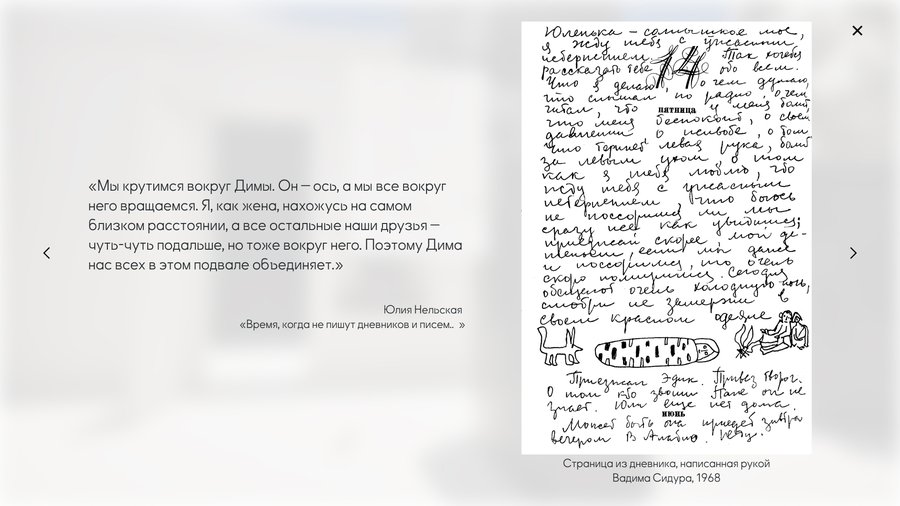 «Мы крутимся вокруг Димы. Он — ось, а мы все вокруг
него вращаемся. Я, как жена, нахожусь на самом
близком расстоянии, а все остальные наши друзья —
чуть-чуть подальше, но тоже вокруг него. Поэтому Дима
нас всех в этом подвале объединяет.»
Юлия Нельская
«Время, когда не пишут дневников и писем.. »
Юленька – солнышко мое,
я жду тебя с ужасным
нетерпением. Так хочется
рассказать тебе 14 обо всем.
Что я делаю, о чем думаю,
что слышал по радио, о чем
читал, что пятница у меня болит,
что меня беспокоит, о своем
давлении о
что терпнет левая рука, болит
за левым ухом, о том
как я тебя люблю, что
жду тебя с ужасным
нетерпением, что боюсь
не поссоримся ли мы
сразу же как увидимся;
приезжай скорее, мой
если мы даже
и поссоримся, то очень
скоро помиримся. Сегодня
обещают очень холодную ночь,
смотри не замерзни в
своем красном одеяле
Приезжал Эдик. Привез творог.
О том кто звонил Папе он не
знает. Юли еще нет дома.
июнь
Может быть она приедет завтра
вечером в Алабино. Жду.
Страница из дневника, написанная рукой
Вадима Сидура, 1968